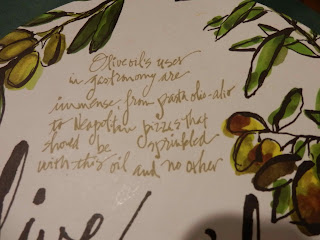 Olive oil's uses
in gastronomy are
immense, from pasta olio-alio
to Neapolitan pizzas that
should be sprinkled
with this oil and no other
olive